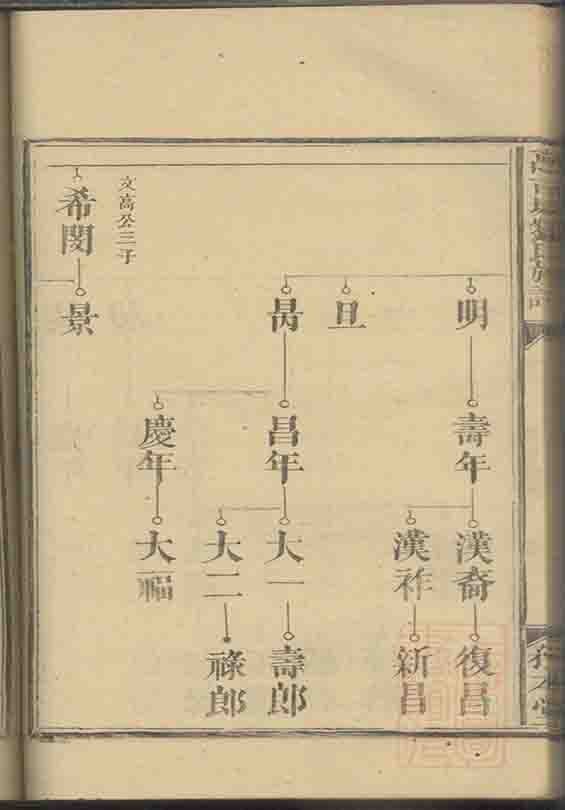 氏族譜
堂
明
壽年
漢裔
復昌
漢祚
新昌
旦
昌年
大一
壽郎
大二
祿郎
慶年
大福
文高公三子
希閔
景